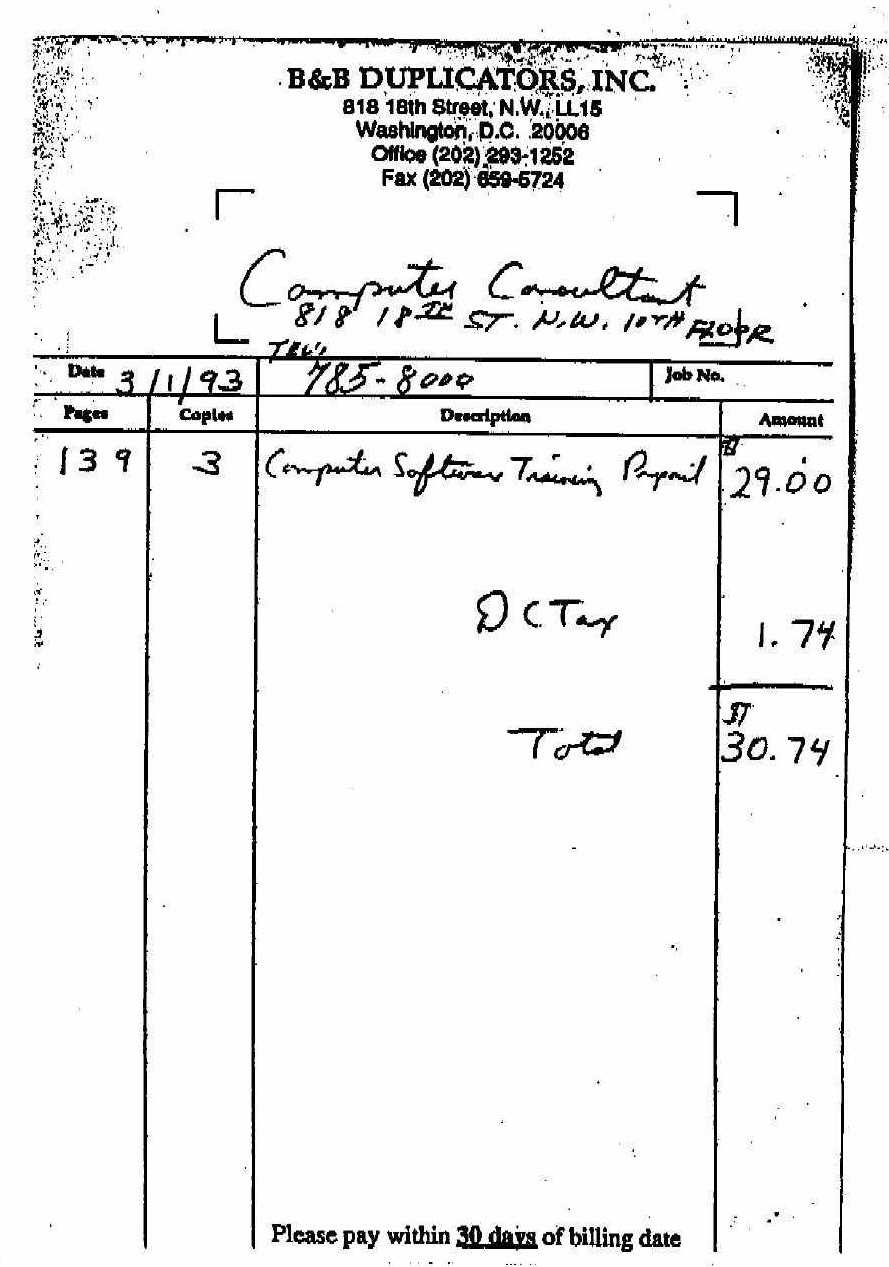 B&B DUPLICATORS, INC.
818 18th Street, N.W., LL15
Washington, D.C. 20006
Office (202) 293-1252
Fax (202) 659-5724
Computer Consultant
818 18TH ST. N.W. 10TH FLOOR
Date 3/1/93 785-8000 Job No.
Pages Copies Description Amount
139 3 Computer Software Training $29.00
DC Tax 1.74
Total $30.74
Please pay within 30 days of billing date